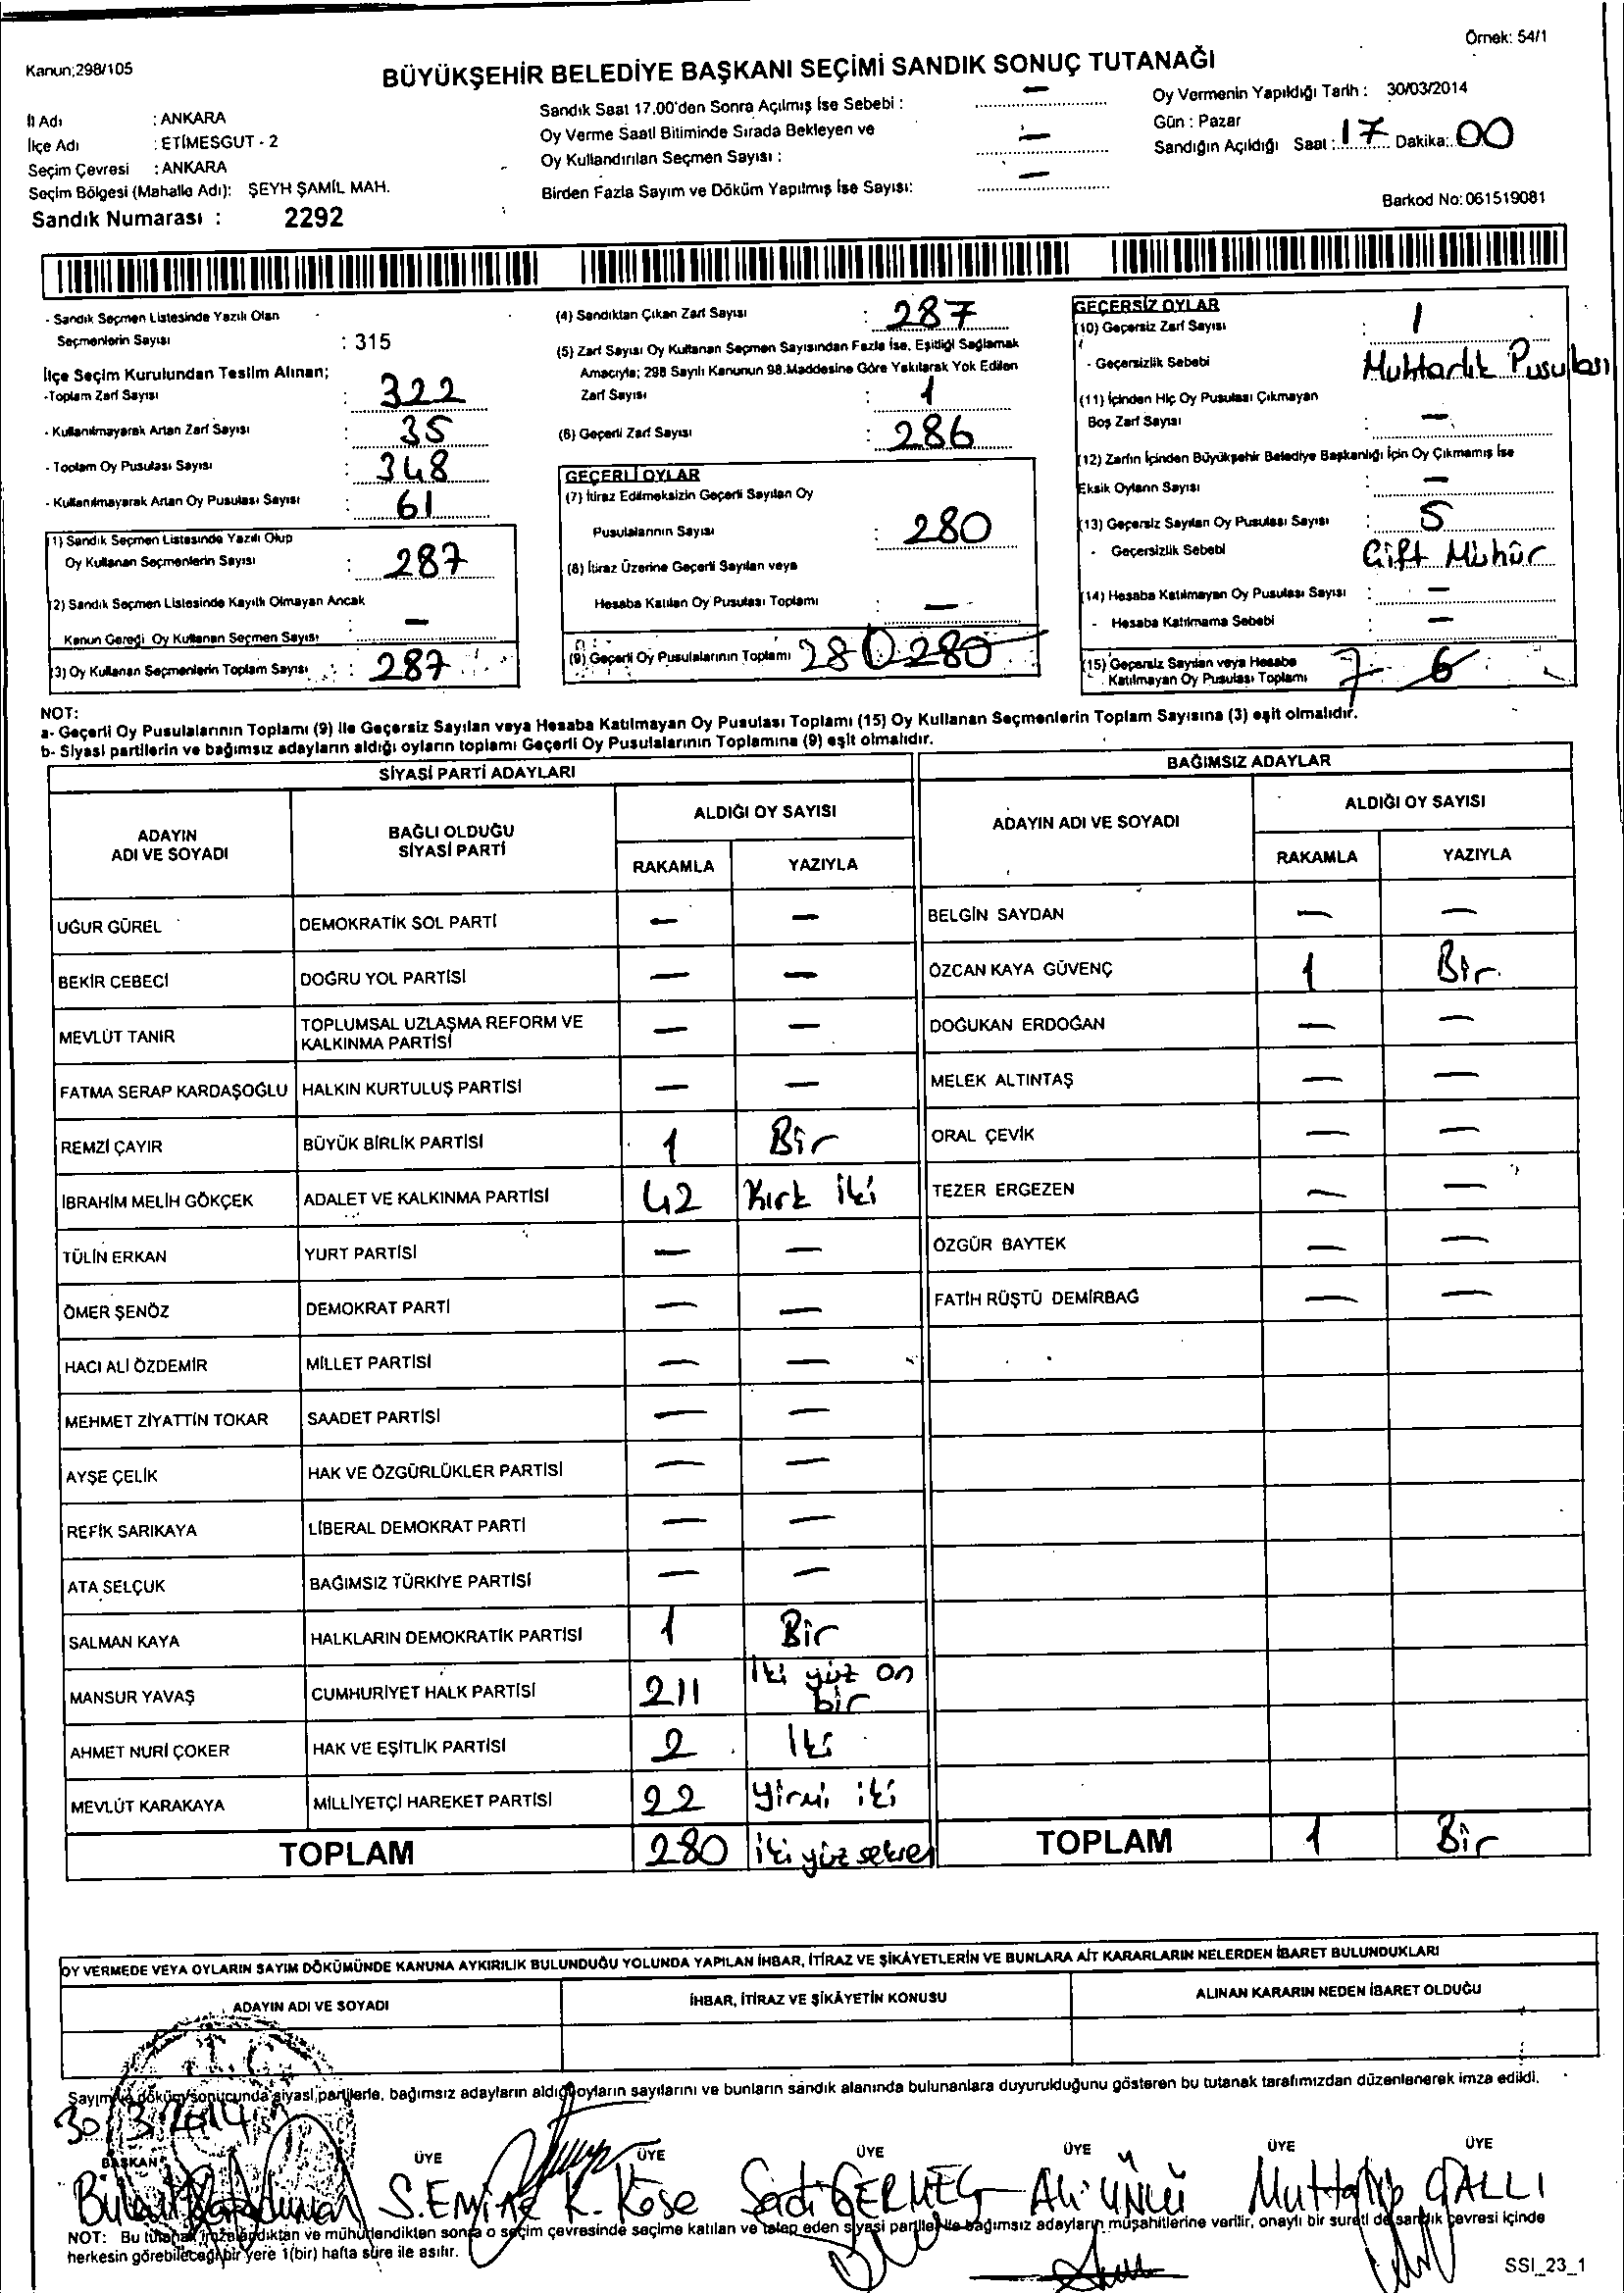 Örnek: 54/1
Kanun;298/105
BÜYÜKŞEHİR BELEDİYE BAŞKANI SEÇİMİ SANDIK SONUÇ TUTANAĞI
İl Adı : ANKARA
İlçe Adı : ETİMESGUT - 2
Seçim Çevresi : ANKARA
Seçim Bölgesi (Mahalle Adı): ŞEYH ŞAMİL MAH.
Sandık Numarası : 2292
Sandık Saat 17.00'den Sonra Açılmış İse Sebebi : —
Oy Verme Saati Bitiminde Sırada Bekleyen ve
Oy Kullandırılan Seçmen Sayısı : —
Birden Fazla Sayım ve Döküm Yapılmış İse Sayısı: —
Oy Vermenin Yapıldığı Tarih : 30/03/2014
Gün : Pazar
Sandığın Açıldığı Saat : 17 Dakika: 00
Barkod No: 061519081
- Sandık Seçmen Listesinde Yazılı Olan
Seçmenlerin Sayısı : 315
İlçe Seçim Kurulundan Teslim Alınan;
-Toplam Zarf Sayısı : 322
- Kullanılmayarak Artan Zarf Sayısı : 35
- Toplam Oy Pusulası Sayısı : 348
- Kullanılmayarak Artan Oy Pusulası Sayısı : 61
(1) Sandık Seçmen Listesinde Yazılı Olup
Oy Kullanan Seçmenlerin Sayısı : 287
(2) Sandık Seçmen Listesinde Kayıtlı Olmayan Ancak
Kanun Gereği Oy Kullanan Seçmen Sayısı : —
(3) Oy Kullanan Seçmenlerin Toplam Sayısı : 287
(4) Sandıktan Çıkan Zarf Sayısı : 287
(5) Zarf Sayısı Oy Kullanan Seçmen Sayısından Fazla İse, Eşitliği Sağlamak
Amacıyla; 298 Sayılı Kanunun 98.Maddesine Göre Yakılarak Yok Edilen
Zarf Sayısı : 1
(6) Geçerli Zarf Sayısı : 286
GEÇERLİ OYLAR
(7) İtiraz Edilmeksizin Geçerli Sayılan Oy
Pusulalarının Sayısı : 280
(8) İtiraz Üzerine Geçerli Sayılan veya
Hesaba Katılan Oy Pusulası Toplamı : —
(9) Geçerli Oy Pusulalarının Toplamı 280 280
GEÇERSİZ OYLAR
(10) Geçersiz Zarf Sayısı : 1
- Geçersizlik Sebebi Muhtarlık Pusulası
(11) İçinden Hiç Oy Pusulası Çıkmayan
Boş Zarf Sayısı : —
(12) Zarfın İçinden Büyükşehir Belediye Başkanlığı İçin Oy Çıkmamış İse
Eksik Oyların Sayısı : —
(13) Geçersiz Sayılan Oy Pusulası Sayısı : 5
- Geçersizlik Sebebi Çift Mühür
(14) Hesaba Katılmayan Oy Pusulası Sayısı : —
- Hesaba Katılmama Sebebi —
(15) Geçersiz Sayılan veya Hesaba
Katılmayan Oy Pusulası Toplamı 7 6
NOT:
a- Geçerli Oy Pusulalarının Toplamı (9) ile Geçersiz Sayılan veya Hesaba Katılmayan Oy Pusulası Toplamı (15) Oy Kullanan Seçmenlerin Toplam Sayısına (3) eşit olmalıdır.
b- Siyasi partilerin ve bağımsız adayların aldığı oyların toplamı Geçerli Oy Pusulalarının Toplamına (9) eşit olmalıdır.
SİYASİ PARTİ ADAYLARI
ADAYIN ADI VE SOYADI BAĞLI OLDUĞU SİYASİ PARTİ ALDIĞI OY SAYISI
RAKAMLA YAZIYLA
UĞUR GÜREL DEMOKRATİK SOL PARTİ — —
BEKİR CEBECİ DOĞRU YOL PARTİSİ — —
MEVLÜT TANIR TOPLUMSAL UZLAŞMA REFORM VE KALKINMA PARTİSİ — —
FATMA SERAP KARDAŞOĞLU HALKIN KURTULUŞ PARTİSİ — —
REMZİ ÇAYIR BÜYÜK BİRLİK PARTİSİ 1 Bir
İBRAHİM MELİH GÖKÇEK ADALET VE KALKINMA PARTİSİ 42 Kırk iki
TÜLİN ERKAN YURT PARTİSİ — —
ÖMER ŞENÖZ DEMOKRAT PARTİ — —
HACI ALİ ÖZDEMİR MİLLET PARTİSİ — —
MEHMET ZİYATTİN TOKAR SAADET PARTİSİ — —
AYŞE ÇELİK HAK VE ÖZGÜRLÜKLER PARTİSİ — —
REFİK SARIKAYA LİBERAL DEMOKRAT PARTİ — —
ATA SELÇUK BAĞIMSIZ TÜRKİYE PARTİSİ — —
SALMAN KAYA HALKLARIN DEMOKRATİK PARTİSİ 1 Bir
MANSUR YAVAŞ CUMHURİYET HALK PARTİSİ 211 İki yüz on bir
AHMET NURİ ÇOKER HAK VE EŞİTLİK PARTİSİ 2 İki
MEVLÜT KARAKAYA MİLLİYETÇİ HAREKET PARTİSİ 22 Yirmi iki
TOPLAM 280 iki yüz seksen
BAĞIMSIZ ADAYLAR
ADAYIN ADI VE SOYADI ALDIĞI OY SAYISI
RAKAMLA YAZIYLA
BELGİN SAYDAN — —
ÖZCAN KAYA GÜVENÇ 1 Bir
DOĞUKAN ERDOĞAN — —
MELEK ALTINTAŞ — —
ORAL ÇEVİK — —
TEZER ERGEZEN — —
ÖZGÜR BAYTEK — —
FATİH RÜŞTÜ DEMİRBAĞ — —
TOPLAM 1 Bir
OY VERMEDE VEYA OYLARIN SAYIM DÖKÜMÜNDE KANUNA AYKIRILIK BULUNDUĞU YOLUNDA YAPILAN İHBAR, İTİRAZ VE ŞİKÂYETLERİN VE BUNLARA AİT KARARLARIN NELERDEN İBARET BULUNDUKLARI
ADAYIN ADI VE SOYADI İHBAR, İTİRAZ VE ŞİKÂYETİN KONUSU ALINAN KARARIN NEDEN İBARET OLDUĞU
T.C.
Sayım ve döküm sonucunda siyasi partilerle, bağımsız adayların aldığı oyların sayılarını ve bunların sandık alanında bulunanlara duyurulduğunu gösteren bu tutanak tarafımızdan düzenlenerek imza edildi.
30/3/2014
BAŞKAN ÜYE ÜYE ÜYE ÜYE ÜYE ÜYE
Bülent S. Emine K. Köse Sadi Ali ÜNLÜ ÇALLI
NOT: Bu tutanak imzalandıktan ve mühürlendikten sonra o seçim çevresinde seçime katılan ve talep eden siyasi partiler ile bağımsız adayların müşahitlerine verilir, onaylı bir sureti de sandık çevresi içinde
herkesin görebileceği bir yere 1(bir) hafta süre ile asılır.
SSI_23_1